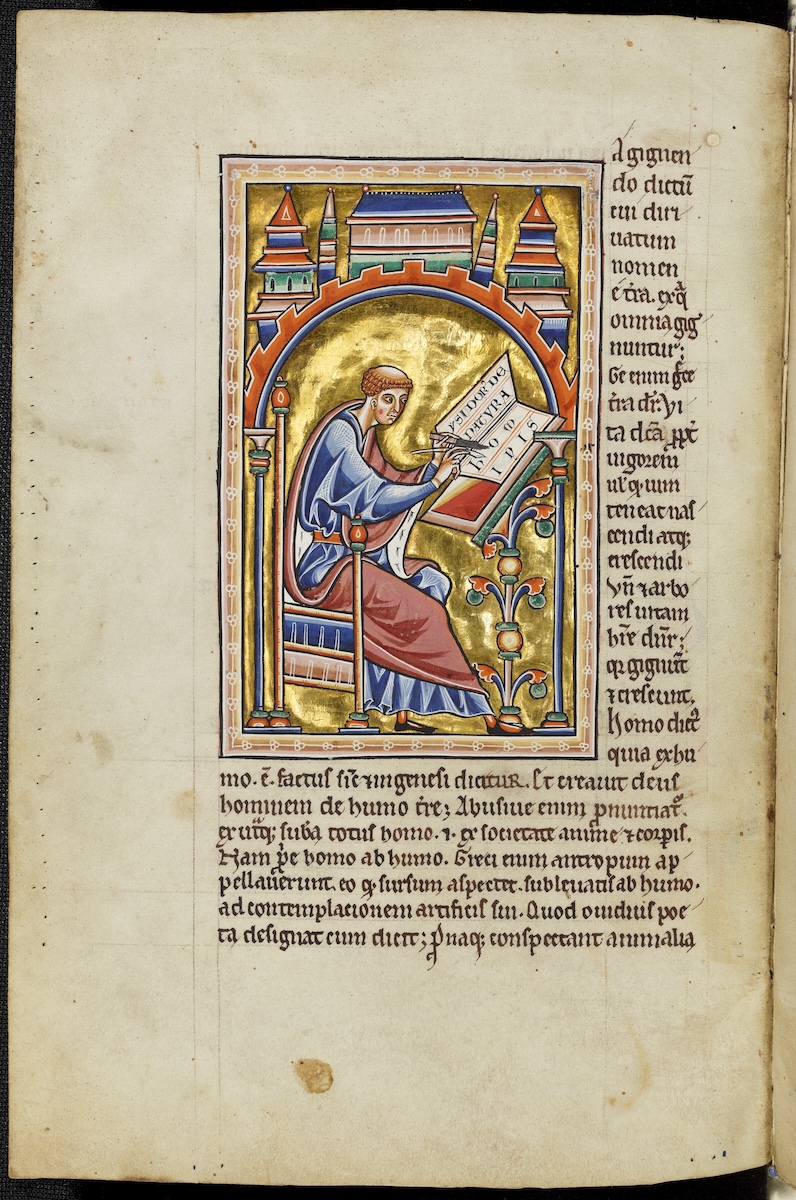 YSIDOR DE
NATVRA
hOM
INIS
A gignen
do dictū
eni diri
uatum
nomen
ē tr̄a. ex q̄
omnia gig
nuntur;
Ge enim gͨce
tr̄a dr̄. Vi
ta dc̄a ꝓpt̄
uigorem
uł q̇ uim
teneat nas
cendi atq;
crescendi
Vn̄ ⁊ arbo
res uitam
hr̄e dn̄r;
qr gignūt
⁊ crescunt.
Homo dict᷒
quia ex hu
mo. ē. factus sic̄ ⁊ in genesi dicitur. Et creauit deus
hominem de humo tr̄e; Abusiue enim ꝓnuntiat᷑.
ex utᵃq; sub̄a totus homo. .i. ex societate anime ⁊ corꝑis.
Nam ꝓp̄e homo ab humo. Greci enim antropum ap
pellauerunt. eo q̇ sursum aspectet. subleuatus ab humo.
ad contemplacionem artificis sui. Quod ouidius poe
ta designat cum dicit; P̄naq; conspectant animalia